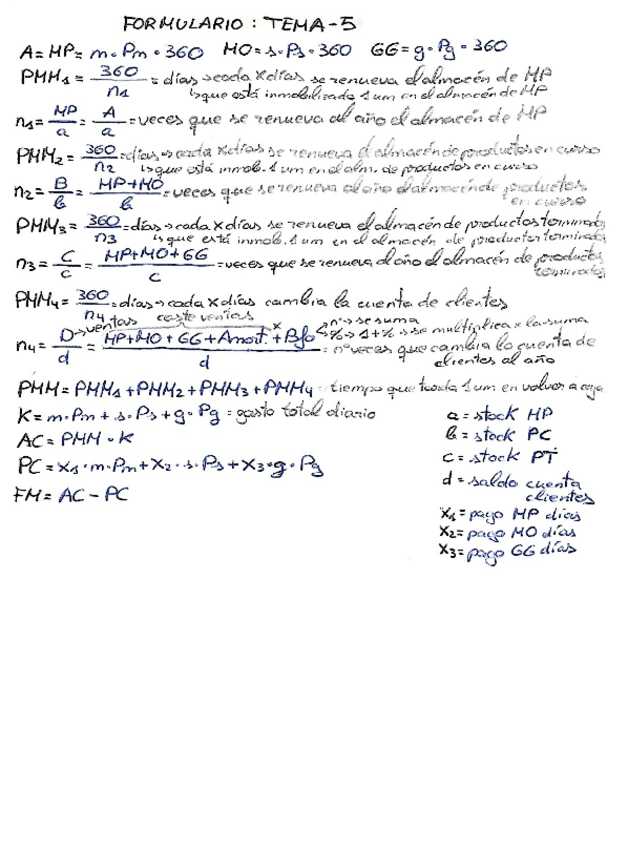 FORMULARIO: TEMA-5
A = MP = m · Pm · 360 MO = s · Ps · 360 GG = g · Pg · 360
PMM₁ = 360/n₁ = días → cada x días se renueva el almacén de MP
↳ que está inmobilizado 1 um en el almacén de MP
n₁ = MP/a = A/a = veces que se renueva al año el almacén de MP
PMM₂ = 360/n₂ = días → cada x días se renueva el almacén de productos en curso
↳ que está inmob. 1 um en el alm. de productos en curso
n₂ = B/b = MP+MO/b = veces que se renueva al año el almacén de productos en curso
PMM₃ = 360/n₃ = días → cada x días se renueva el almacén de productos terminados
↳ que está inmob. 1 um en el almacén de productos terminados
n₃ = C/c = MP+MO+GG/c = veces que se renueva al año el almacén de productos terminados
PMM₄ = 360/n₄ = días → cada x días cambia la cuenta de clientes
D → ventas coste ventas nº → se suma
% → 1+% → se multiplica x la suma
n₄ = D/d = MP+MO+GG+Amort.+Bfo/d = nº veces que cambia la cuenta de clientes al año
PMM = PMM₁ + PMM₂ + PMM₃ + PMM₄ = tiempo que tarda 1 um en volver a caja
K = m·Pm + s·Ps + g·Pg = gasto total diario
AC = PMM · K
PC = x₁·m·Pm + x₂·s·Ps + x₃·g·Pg
FM = AC - PC
a = stock MP
b = stock PC
c = stock PT
d = saldo cuenta
clientes
x₁ = pago MP días
x₂ = pago MO días
x₃ = pago GG días